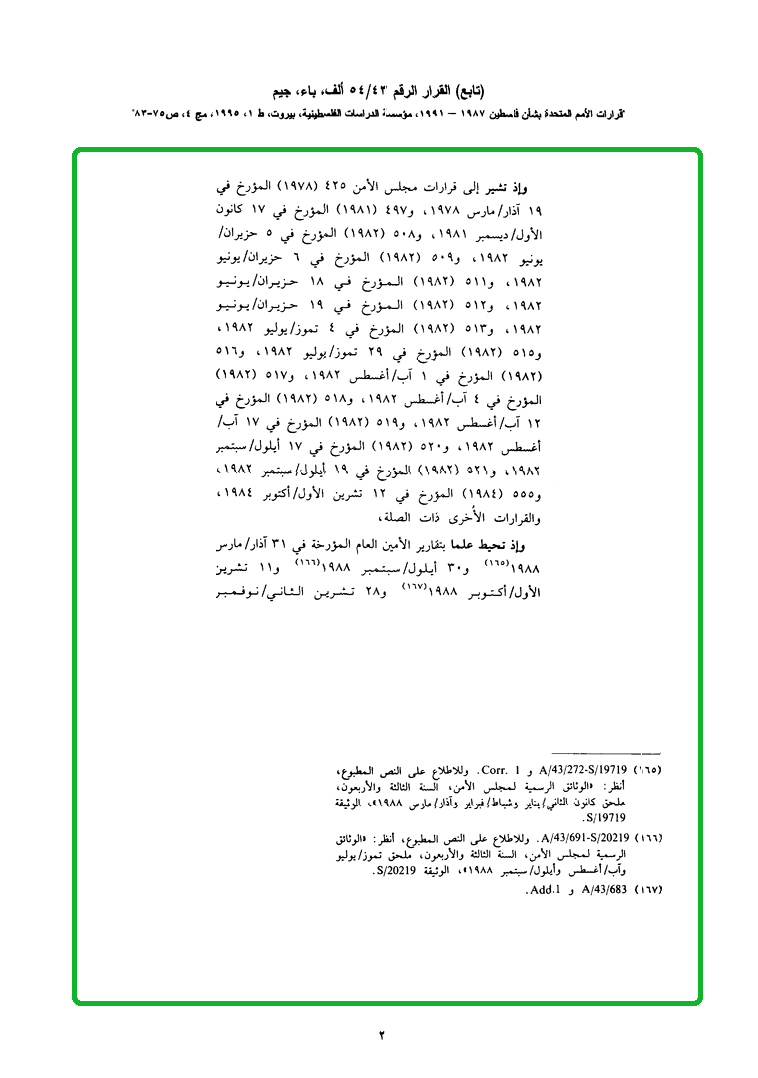 (تابع) القرار الرقم ٥٤/٤٣ ألف، باء، جيم
"قرارات الأمم المتحدة بشأن فلسطين ١٩٨٧ — ١٩٩١، مؤسسة الدراسات الفلسطينية، بيروت، ط ١، ١٩٩٥، مج ٤، ص٧٥-٨٣"
وإذ تشير إلى قرارات مجلس الأمن ٤٢٥ (١٩٧٨) المؤرخ في
١٩ آذار/مارس ١٩٧٨، و٤٩٧ (١٩٨١) المؤرخ في ١٧ كانون
الأول/ديسمبر ١٩٨١، و٥٠٨ (١٩٨٢) المؤرخ في ٥ حزيران/
يونيو ١٩٨٢، و٥٠٩ (١٩٨٢) المؤرخ في ٦ حزيران/يونيو
١٩٨٢، و٥١١ (١٩٨٢) المؤرخ في ١٨ حزيران/يونيو
١٩٨٢، و٥١٢ (١٩٨٢) المؤرخ في ١٩ حزيران/يونيو
١٩٨٢، و٥١٣ (١٩٨٢) المؤرخ في ٤ تموز/يوليو ١٩٨٢،
و٥١٥ (١٩٨٢) المؤرخ في ٢٩ تموز/يوليو ١٩٨٢، و٥١٦
(١٩٨٢) المؤرخ في ١ آب/أغسطس ١٩٨٢، و٥١٧ (١٩٨٢)
المؤرخ في ٤ آب/أغسطس ١٩٨٢، و٥١٨ (١٩٨٢) المؤرخ في
١٢ آب/أغسطس ١٩٨٢، و٥١٩ (١٩٨٢) المؤرخ في ١٧ آب/
أغسطس ١٩٨٢، و٥٢٠ (١٩٨٢) المؤرخ في ١٧ أيلول/سبتمبر
١٩٨٢، و٥٢١ (١٩٨٢) المؤرخ في ١٩ أيلول/سبتمبر ١٩٨٢،
و٥٥٥ (١٩٨٤) المؤرخ في ١٢ تشرين الأول/أكتوبر ١٩٨٤،
والقرارات الأخرى ذات الصلة،
وإذ تحيط علما بتقارير الأمين العام المؤرخة في ٣١ آذار/مارس
١٩٨٨(١٦٥) و٣٠ أيلول/سبتمبر ١٩٨٨(١٦٦) و١١ تشرين
الأول/أكتوبر ١٩٨٨(١٦٧) و٢٨ تشرين الثاني/نوفمبر
(١٦٥) A/43/272-S/19719 و Corr. 1. وللاطلاع على النص المطبوع،
أنظر: «الوثائق الرسمية لمجلس الأمن، السنة الثالثة والأربعون،
ملحق كانون الثاني/يناير وشباط/فبراير وآذار/مارس ١٩٨٨»، الوثيقة
S/19719.
(١٦٦) A/43/691-S/20219. وللاطلاع على النص المطبوع، أنظر: «الوثائق
الرسمية لمجلس الأمن، السنة الثالثة والأربعون، ملحق تموز/يوليو
وآب/أغسطس وأيلول/سبتمبر ١٩٨٨»، الوثيقة S/20219.
(١٦٧) A/43/683 و Add.1.
٢